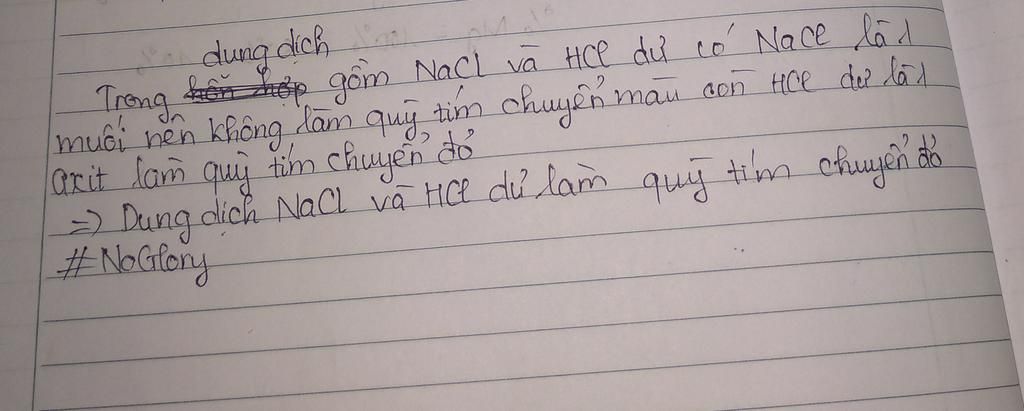 dung dịch
Trong hỗn hợp gồm NaCl và HCl dư có NaCl là 1
muối nên không làm quỳ tím chuyển màu còn HCl dư là 1
axit làm quỳ tím chuyển đỏ
=> Dung dịch NaCl và HCl dư làm quỳ tím chuyển đỏ
#NoGlory